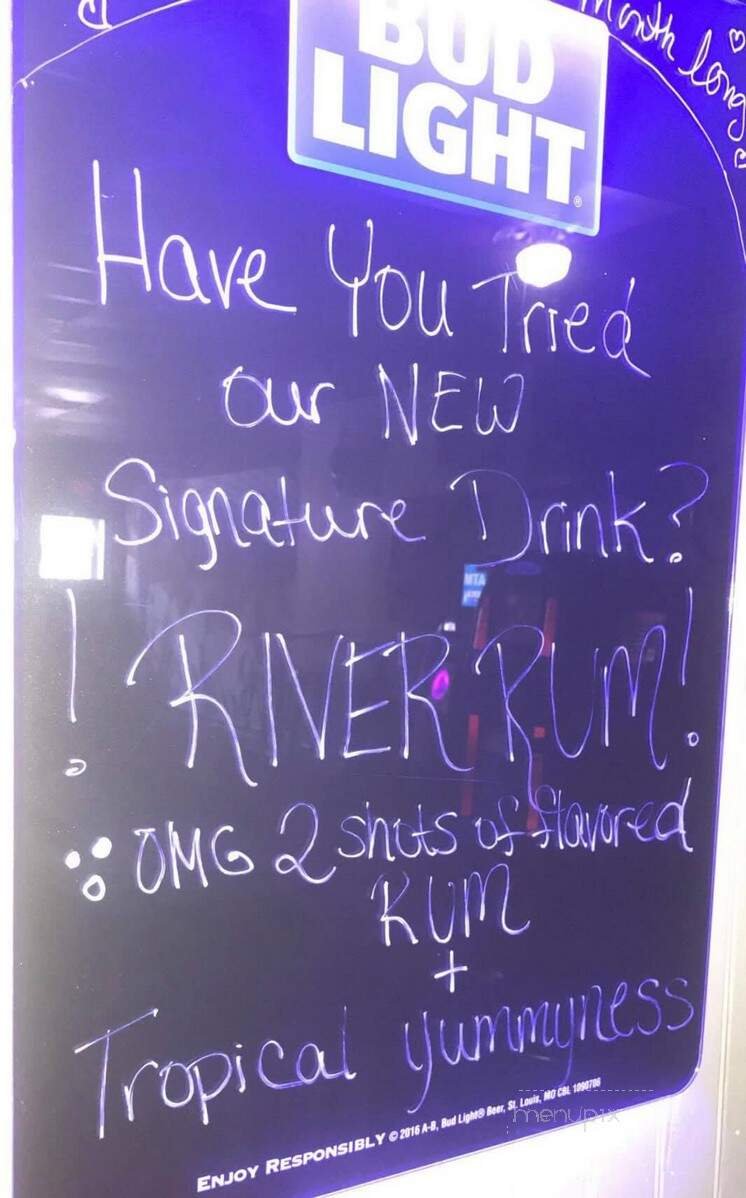 Month long
BUD
LIGHT
Have You Tried
our NEW
Signature Drink?
! RIVER RUM!
OMG 2 shots of flavored
RUM
+
Tropical yummyness
ENJOY RESPONSIBLY © 2016 A-B, Bud Light® Beer, St. Louis, MO CBL 1090706
menupix
MTA